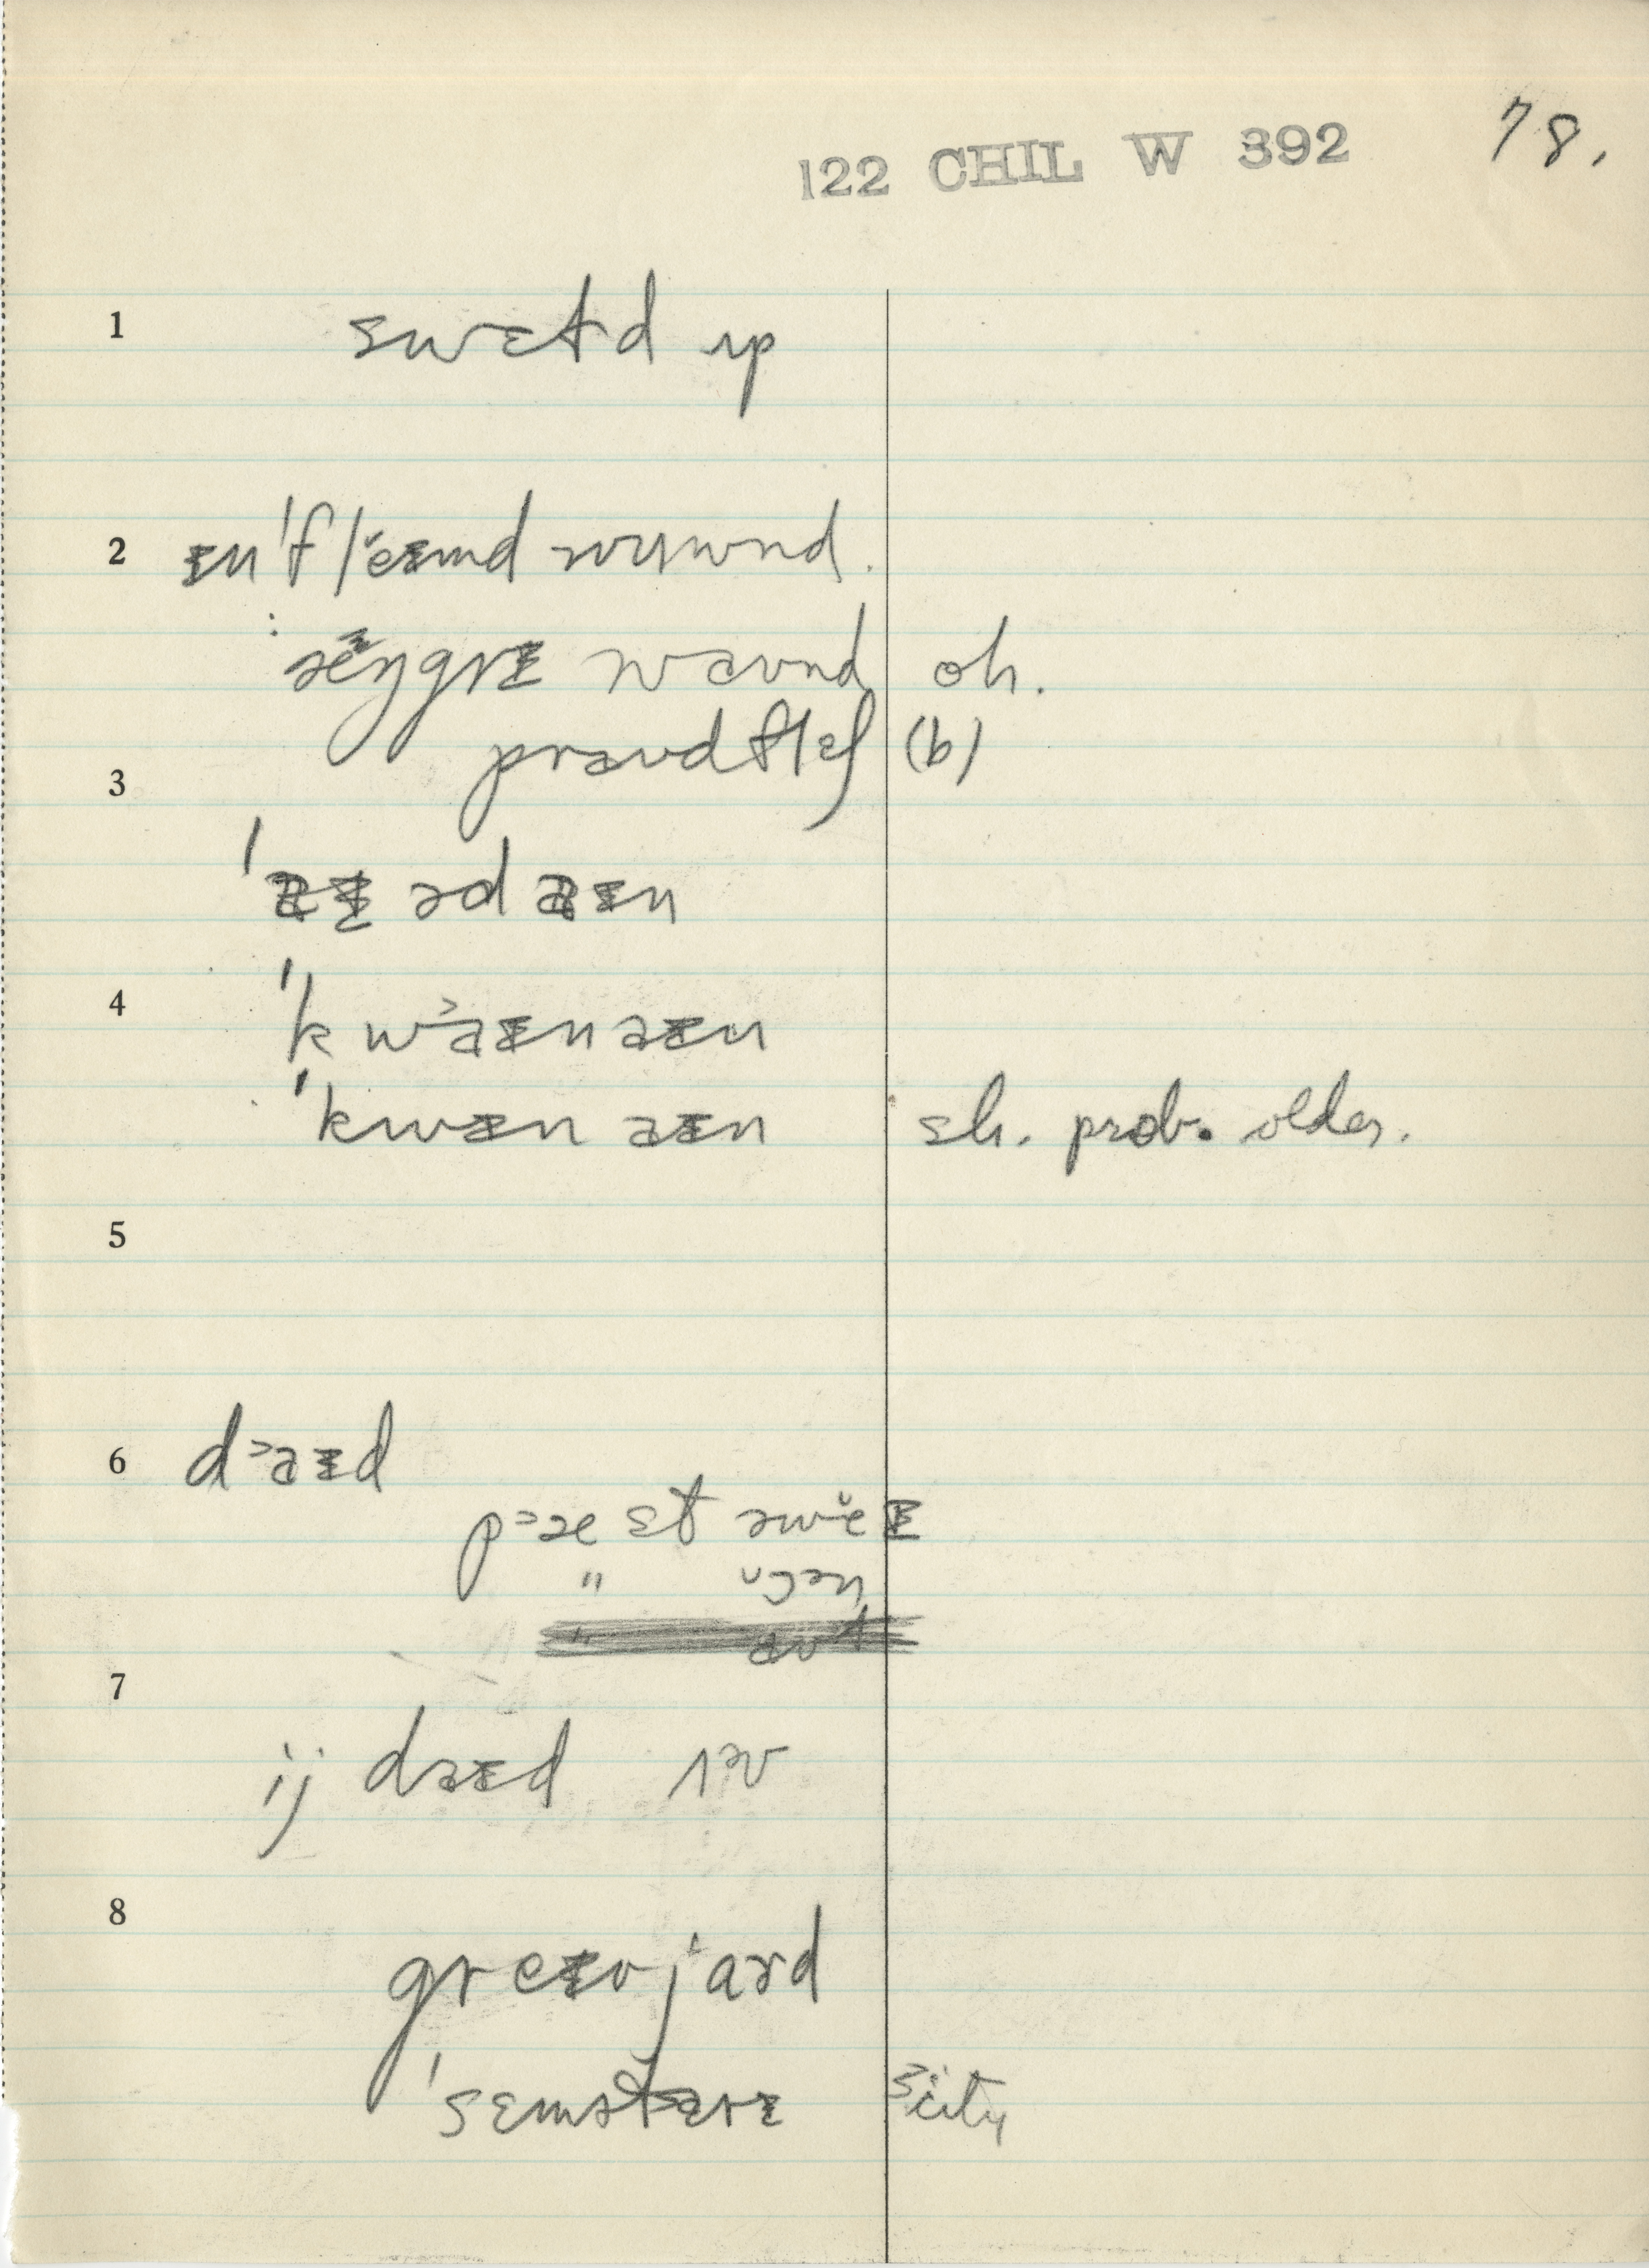 122 CHIL W 392 78.
1 swɛtd ɩp
2 ɪn'flĕɪmd wuwnd.
: æ̆ŋgrɪ waʊnd oh.
praʊdflɛʃ (b)
3
'aɪədaɪn
4 'kwɜaɪnaɪn
'kwɪnaɪn sh. prob. older.
5
6 dɜaɪd
pɜæst əwĕɪ
" ɔn
7
ij daɪd əv
8 greɪvjard
'sɛmətɛrɪ city